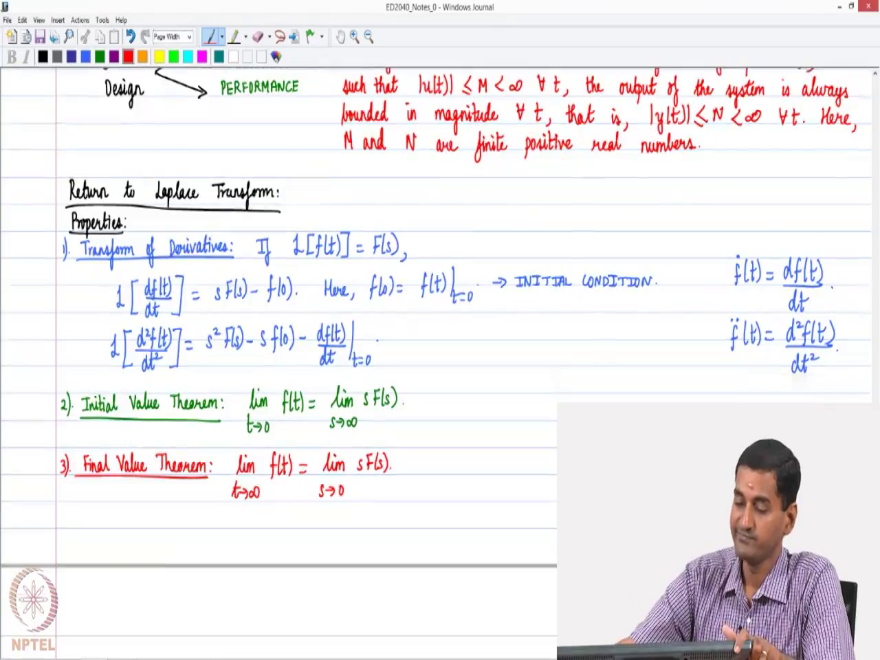 ED2040_Notes_0 - Windows Journal
File Edit View Insert Actions Tools Help
Page Width
B I
Design → PERFORMANCE
such that |u(t)| ≤ M < ∞ ∀ t, the output of the system is always
bounded in magnitude ∀ t, that is, |y(t)| ≤ N < ∞ ∀ t. Here,
M and N are finite positive real numbers.
Return to Laplace Transform:
Properties:
1). Transform of Derivatives: If L[f(t)] = F(s),
L[df(t)/dt] = s F(s) - f(0). Here, f(0) = f(t)|t=0 → INITIAL CONDITION.
ḟ(t) = df(t)/dt.
L[d²f(t)/dt²] = s² F(s) - s f(0) - df(t)/dt|t=0.
f̈(t) = d²f(t)/dt².
2). Initial Value Theorem: lim t→0 f(t) = lim s→∞ s F(s).
3). Final Value Theorem: lim t→∞ f(t) = lim s→0 s F(s).
NPTEL